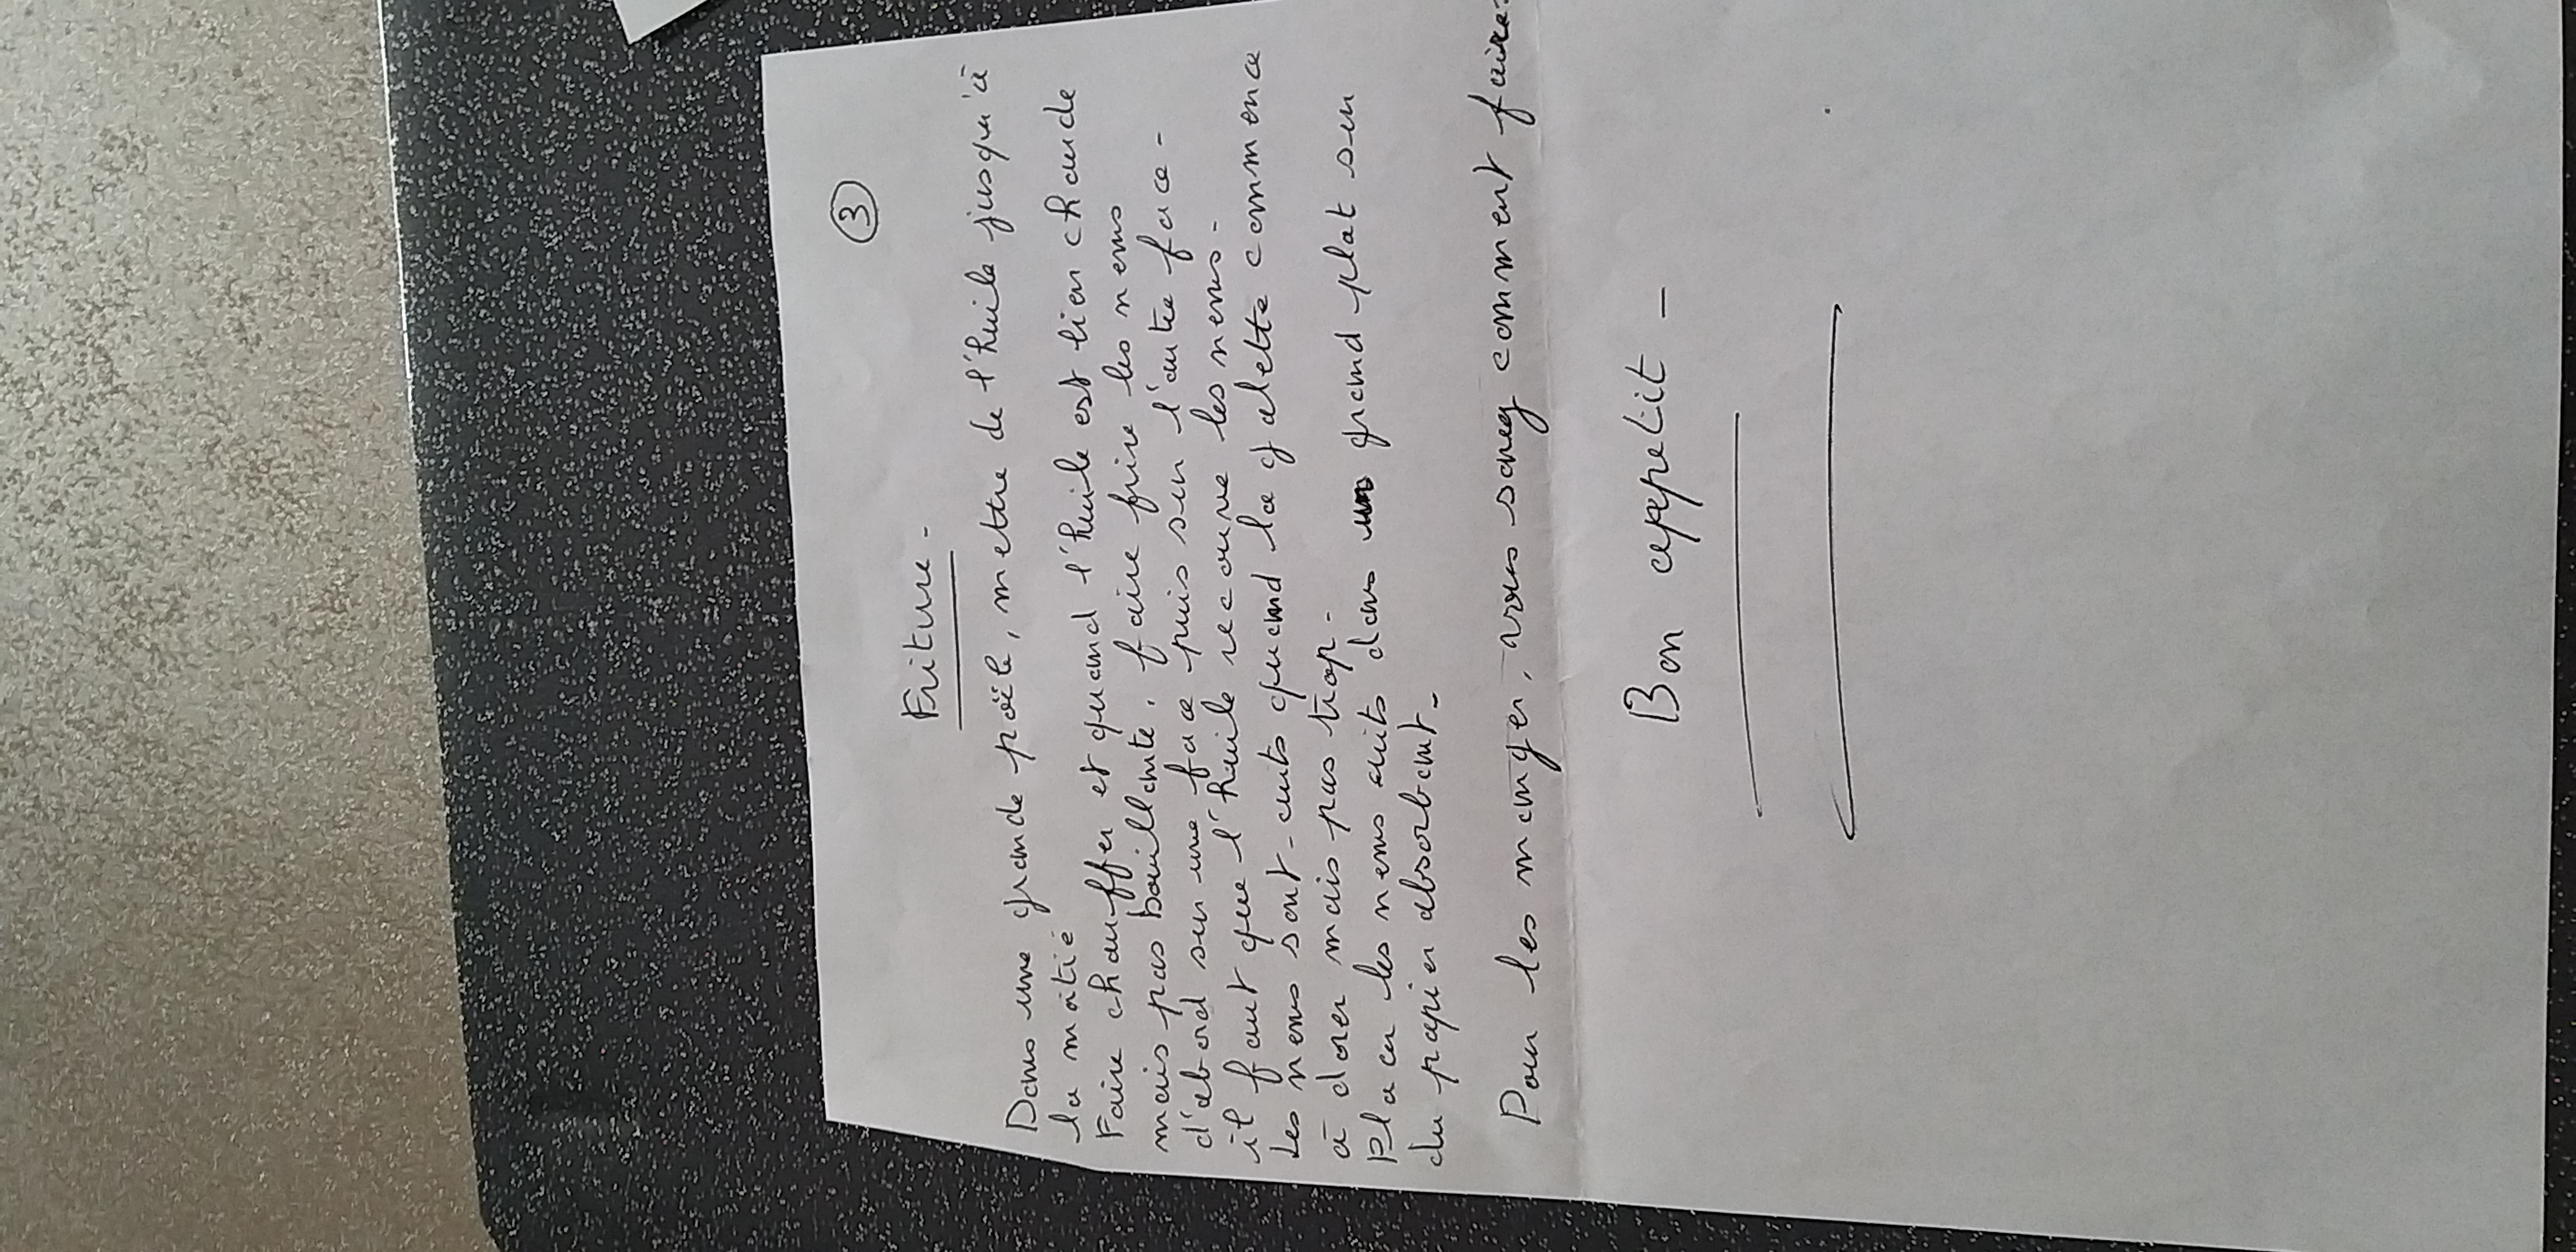 ③
Friture -
Dans une grande poële, mettre de l'huile jusqu'à
la moitié
Faire chauffer et quand l'huile est bien chaude
mais pas bouillante, faire frire les nems
d'abord sur une face puis sur l'autre face -
il faut que l'huile recouvre les nems -
Les nems sont - cuits quand la galette commence
à dorer mais pas trop -
Placer les nems cuits dans un grand plat sur
du papier absorbant -
Pour les manger, vous savez comment faire.
Bon appetit -